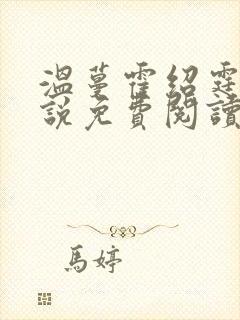 溫蔓霍紹霆
說免費閱讀
馬婷